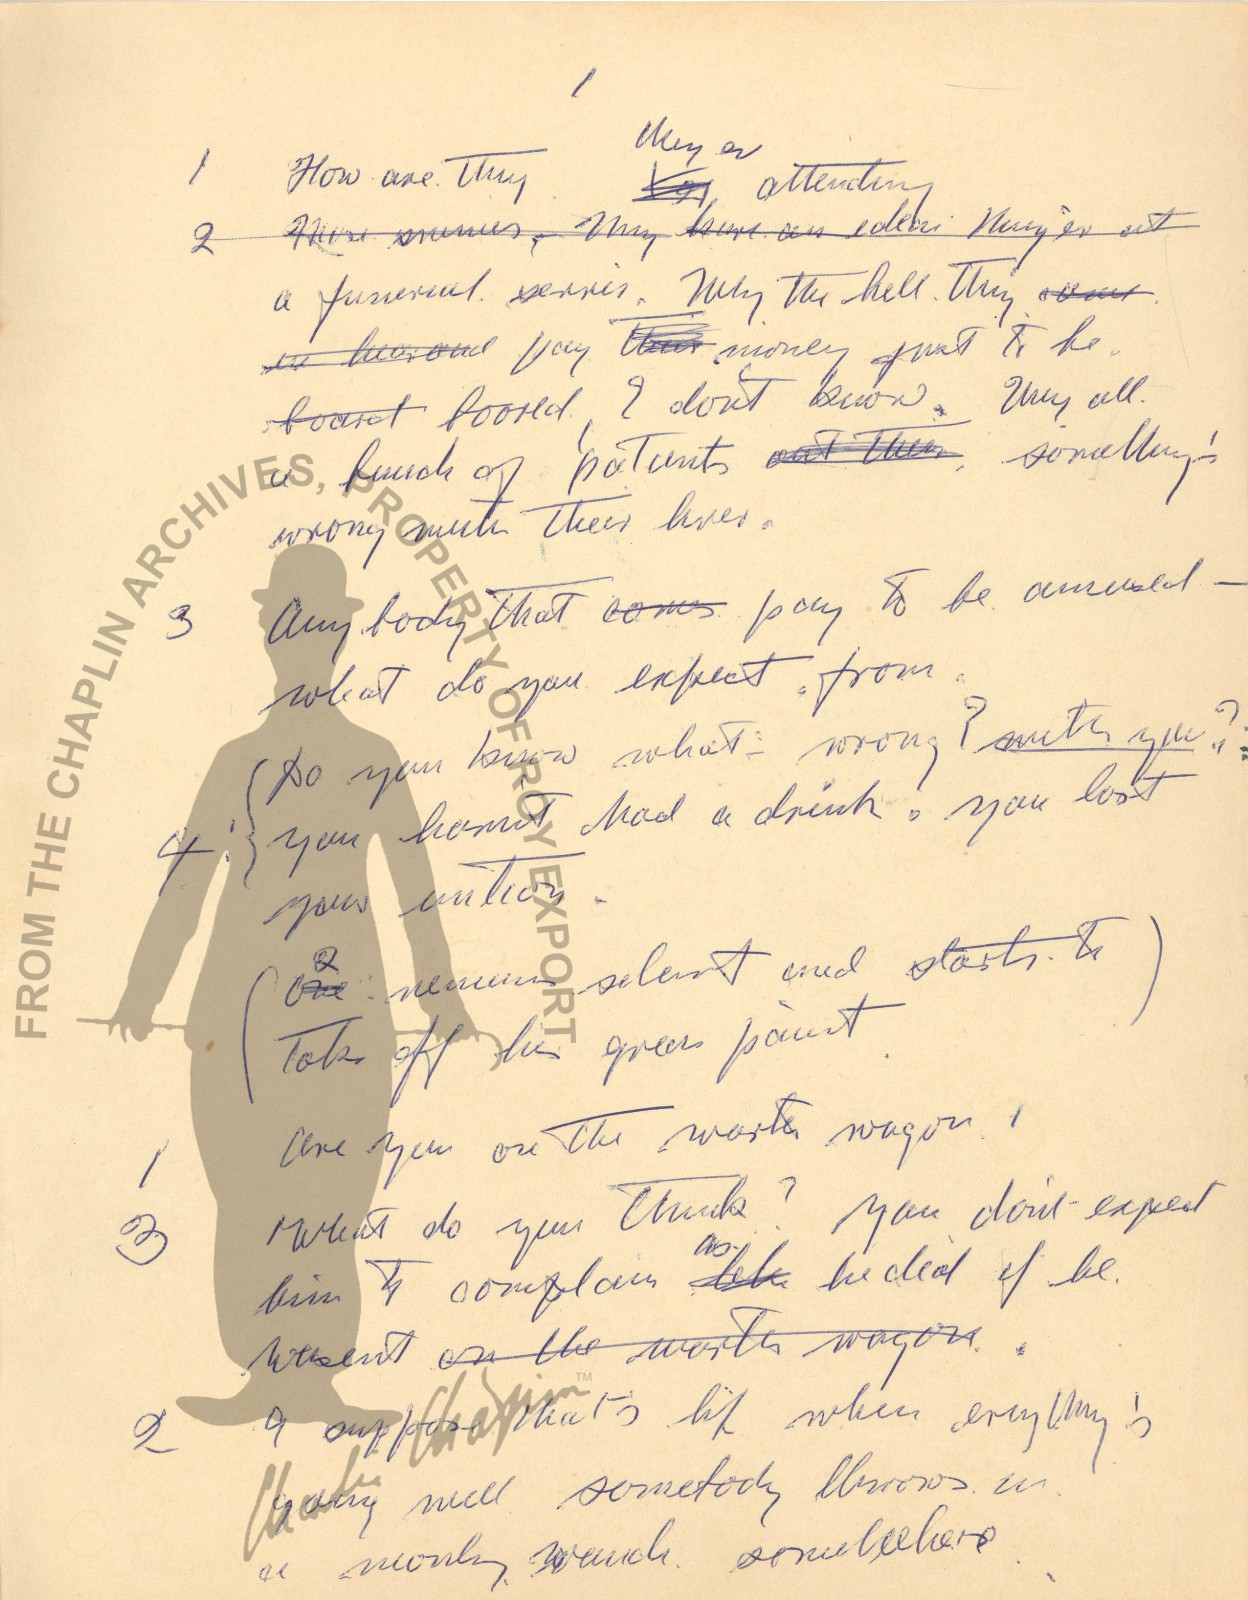 1
1 How are they
they er
attending
2
a funeral servis. Why the hell they
pay money just to be
boored, I don't know. They all
a bunch of patants something's
wrong with their liver.
3 Any body that coms pay to be amused —
what do you expect from.
4 Do you know what's wrong? with you?
you hasn't had a drink. you lost
your
2
( remains silent and starts to
Take off his grees paint )
1 Are you on the wartes wagon!
3 What do you think? You don't expect
as
him to complain he did if he
wasent on the wartes wagon.
2 I suppose that's lif when everything's
going well somebody throws in
a monky wench
FROM THE CHAPLIN ARCHIVES, PROPERTY OF ROY EXPORT
Charlie Chaplin™